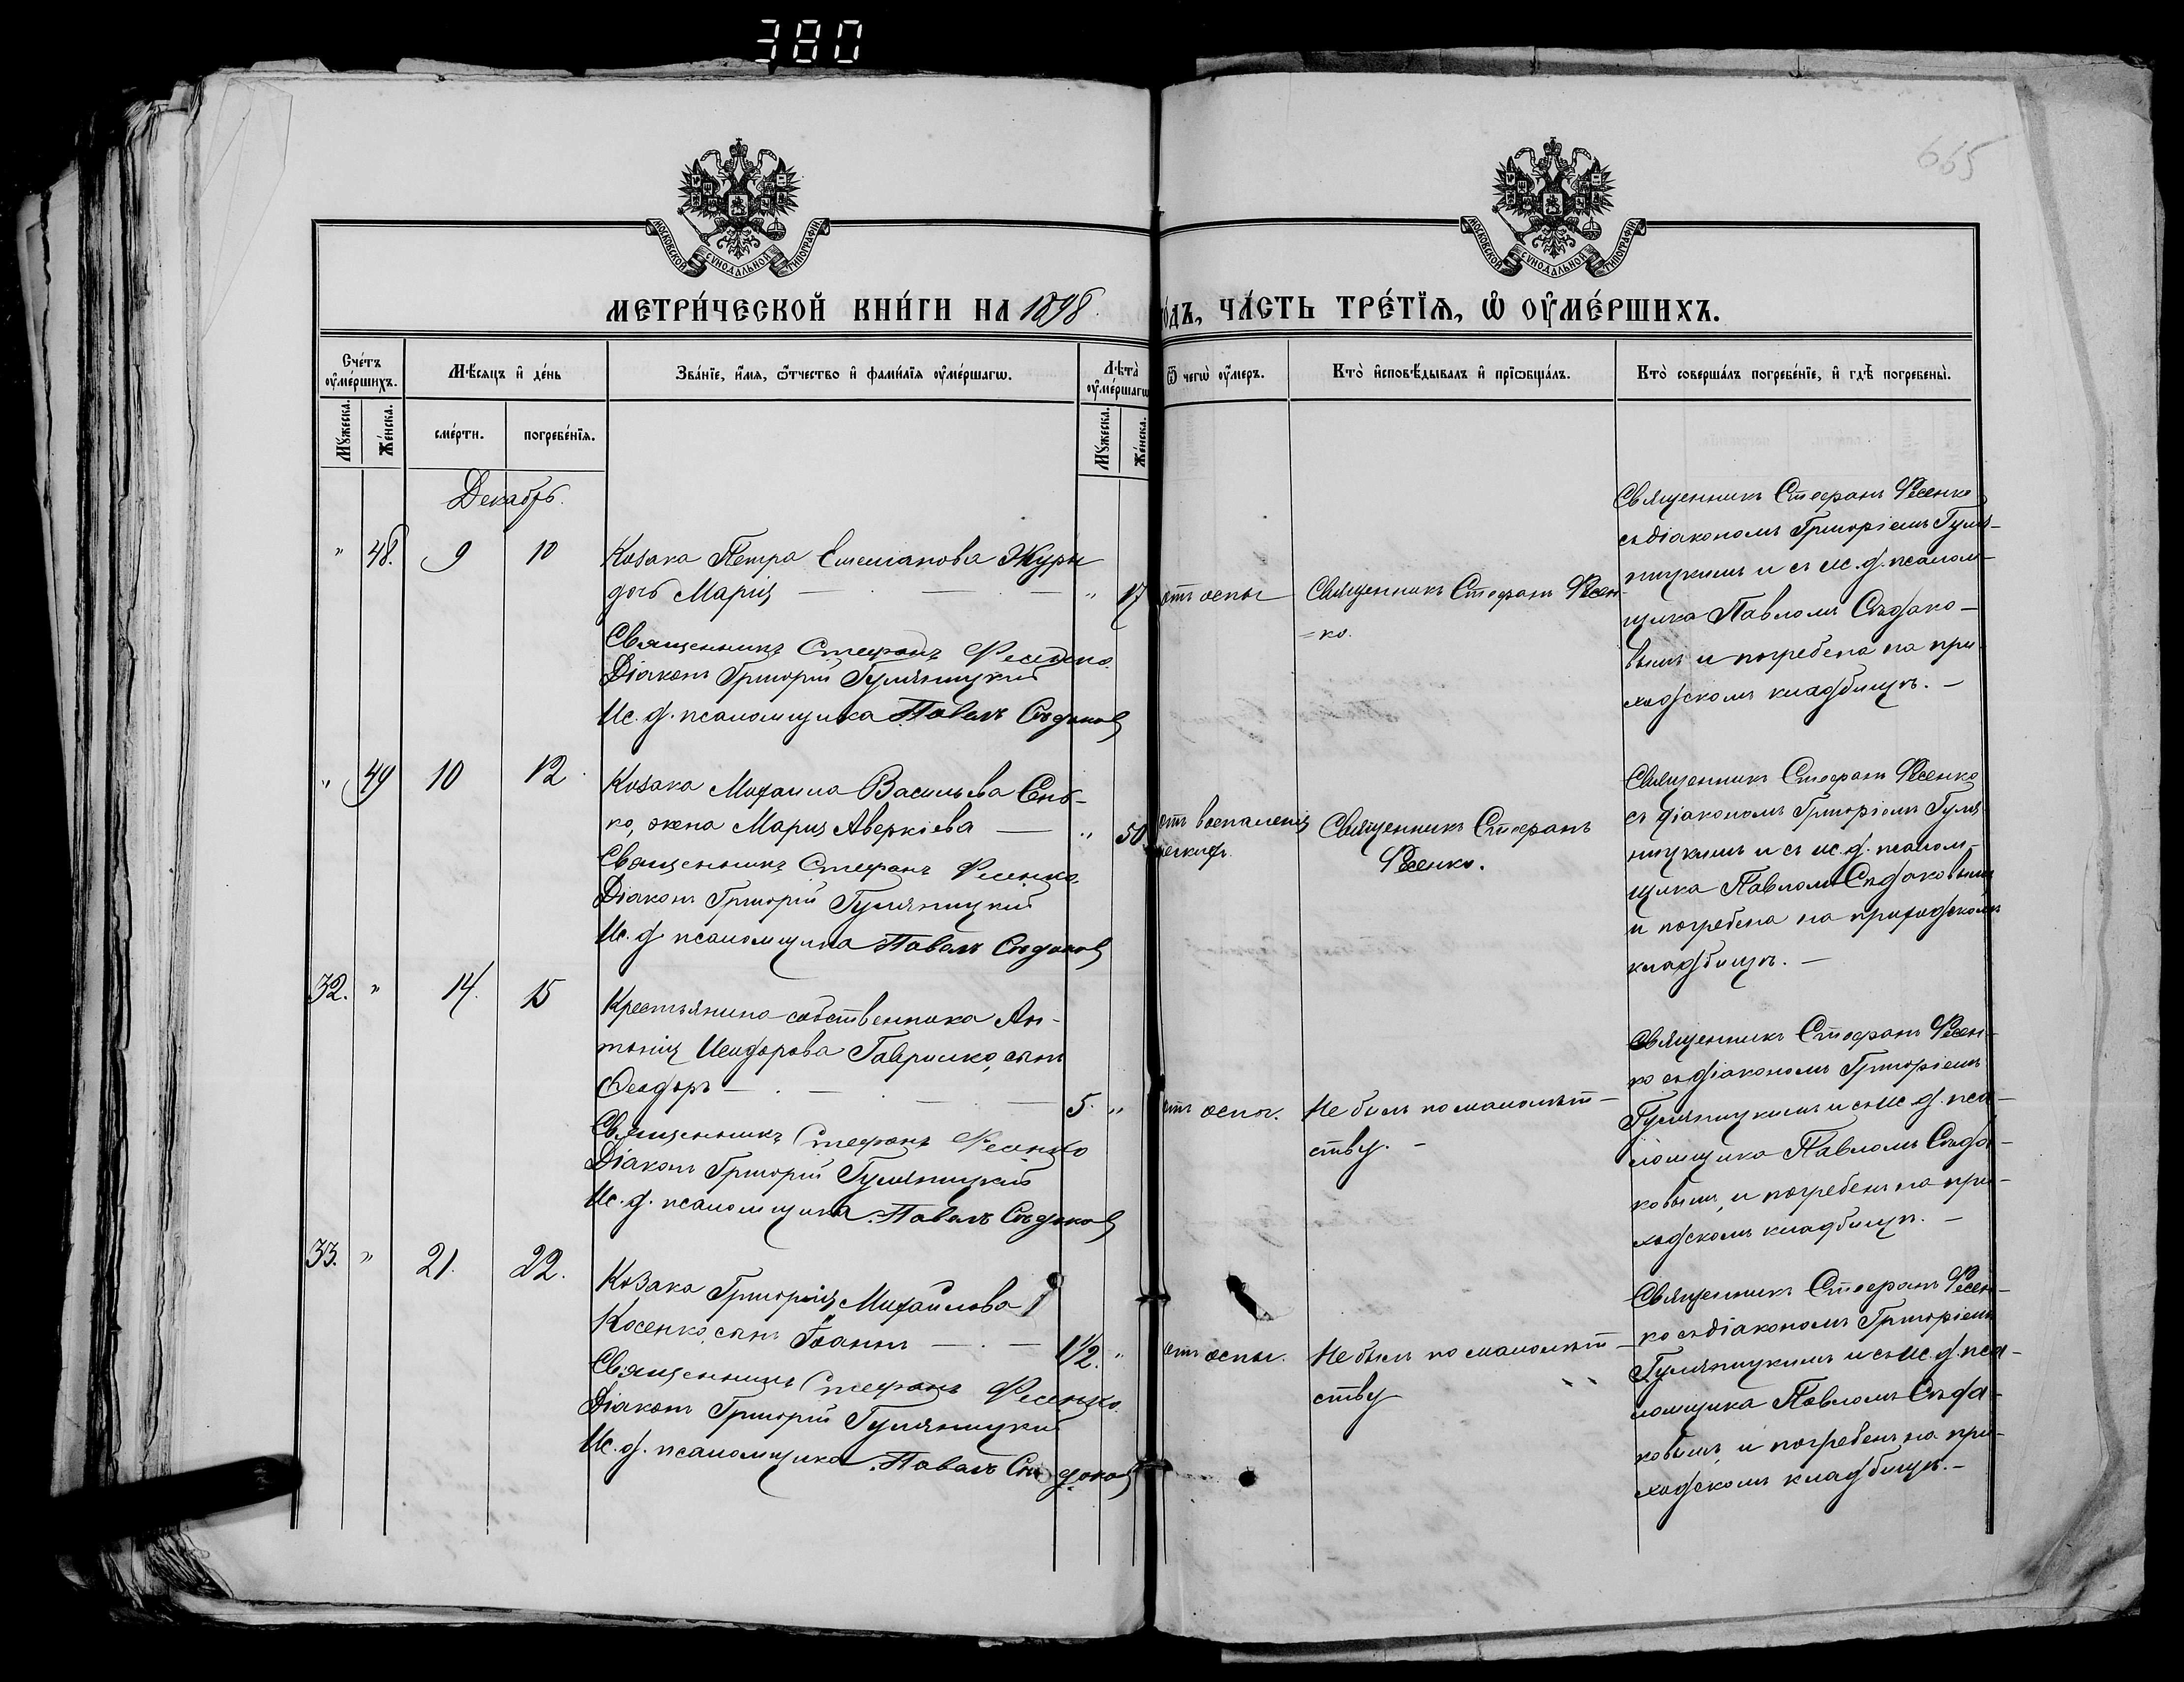 380
665
МОСКОВСКОЙ СѴНОДАЛЬНОЙ ТИПОГРАФІИ
МОСКОВСКОЙ СѴНОДАЛЬНОЙ ТИПОГРАФІИ
МЕТРИ́ЧЕСКОЙ КНИ́ГИ НА 1898.
о́дъ, ЧА́СТЬ ТРЕ́ТІѦ, Ѡ҆ ОУ҆МЕ́РШИХЪ.
Сче́тъ оу҆ме́ршихъ.
Мѣ́сяцъ и҆ де́нь
Зва́нїе, и҆́мя, ѻ҆́тчество и҆ фами́лїя оу҆ме́ршагѡ.
Лѣ́та оу҆ме́ршагѡ
Ѿ чегѡ̀ оу҆́меръ.
Кто̀ и҆сповѣ́дывалъ и҆ прїѡбща́лъ.
Кто̀ соверша́лъ погребе́нїе, и҆ гдѣ̀ погребены̀.
Мꙋ́жеска.
Же́нска.
сме́рти.
погребе́нїя.
Мꙋ́жеска.
Же́нска.
Декабрь.
" 48. 9 10
Козака Петра Емеліанова Журы
дочь Марія — . — . — " 17
Священникъ Стефанъ Фесенко.
Діаконъ Григорій Гуляницкій
Ис. д. псаломщика Павелъ Сѣдаковъ
отъ оспы
Священникъ Стефанъ Фесен-
=ко.
Священникъ Стефанъ Фесенко
съ діакономъ Григоріемъ Гуля-
ницкимъ и съ ис. д. псалом-
щика Павломъ Сѣдако-
вымъ и погребена на при-
ходскомъ кладбищѣ. —
" 49 10 12
Козака Михаила Васильева Сень-
ко, жена Марія Аверкіева — " 50
Священникъ Стефанъ Фесенко.
Діаконъ Григорій Гуляницкій
Ис. д псаломщика Павелъ Сѣдаковъ
отъ воспаленія
легкихъ.
Священникъ Стефанъ
Фесенко.
Священникъ Стефанъ Фесенко
съ діакономъ Григоріемъ Гуля-
ницкимъ и съ ис. д. псалом-
щика Павломъ Сѣдаковымъ
и погребена на приходскомъ
кладбищѣ. —
32. " 14. 15
Крестьянина собственника Ан-
тонія Исидорова Гаврилко, сынъ
Ѳеодоръ — . — . — . — 5. "
Священникъ Стефанъ Фесенко
Діаконъ Григорій Гуляницкій
Ис. д. псаломщика Павелъ Сѣдаковъ
отъ оспы.
Не былъ по малолѣт-
ству. —
Священникъ Стефанъ Фесен-
ко съ діакономъ Григоріемъ
Гуляницкимъ и съ ис. д. пса-
ломщика Павломъ Сѣда-
ковымъ, и погребенъ на при-
ходскомъ кладбищѣ. —
33. " 21. 22.
Козака Григорія Михайлова
Косенко, сынъ Іоаннъ — . — 1 1/2. "
Священникъ Стефанъ Фесенко.
Діаконъ Григорій Гуляницкій
Ис. д. псаломщика Павелъ Сѣдаковъ
отъ оспы.
Не былъ по малолѣт-
ству
Священникъ Стефанъ Фесен-
ко съ діакономъ Григоріемъ
Гуляницкимъ и съ ис. д. пса-
ломщика Павломъ Сѣда-
ковымъ, и погребенъ на при-
ходскомъ кладбищѣ. —